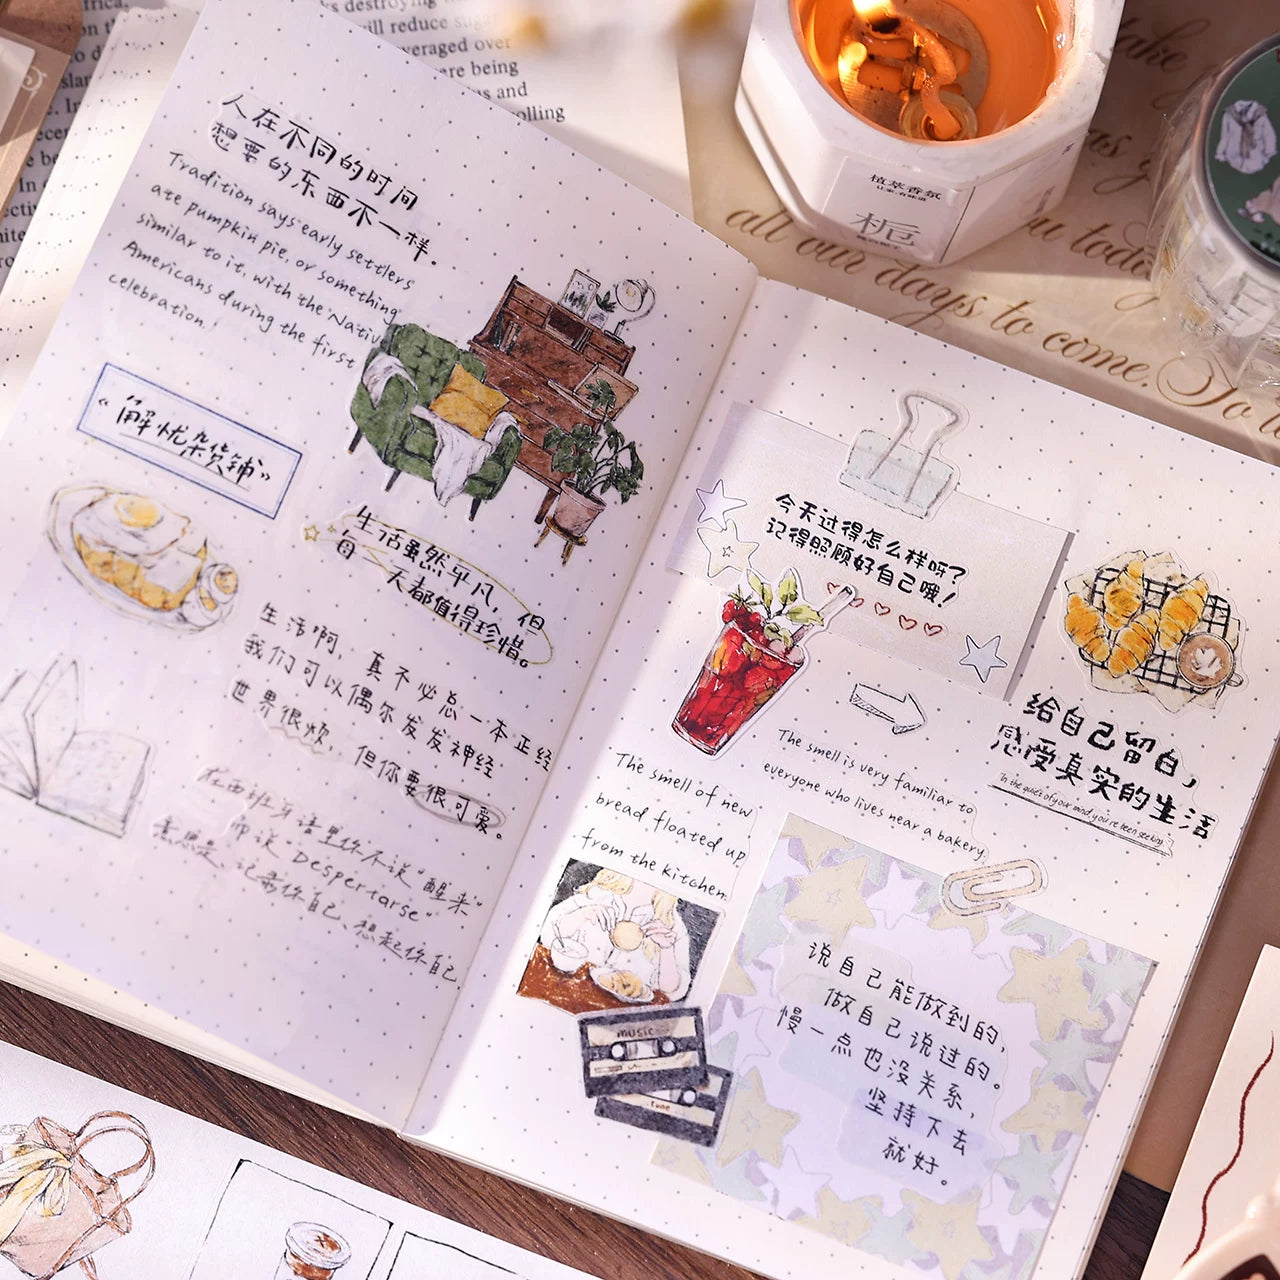 ks destroying
will reduce sugar
averaged over
are being
and
olling
人在不同的时间
想要的东西不一样。
Tradition says early settlers
ate pumpkin pie, or something
similar to it, with the Nativ
Americans during the first
celebration.
“解忧杂货铺”
生活虽然平凡，但
每一天都值得珍惜。
生活啊，真不必总一本正经
我们可以偶尔发发神经
世界很烦，但你要很可爱。
在西班牙语里你不说“醒来”
而说“Despertarse”
意思是，记录你自己、想起你自己
植萃香氛
栀
all our days to come. To
今天过得怎么样呀?
记得照顾好自己哦!
给自己留白，
感受真实的生活
In the quiet of your mind, you're been seeking
The smell is very familiar to
everyone who lives near a bakery.
The smell of new
bread floated up
from the kitchen.
music
tune
说自己能做到的，
做自己说过的。
慢一点也没关系，
坚持下去
就好。